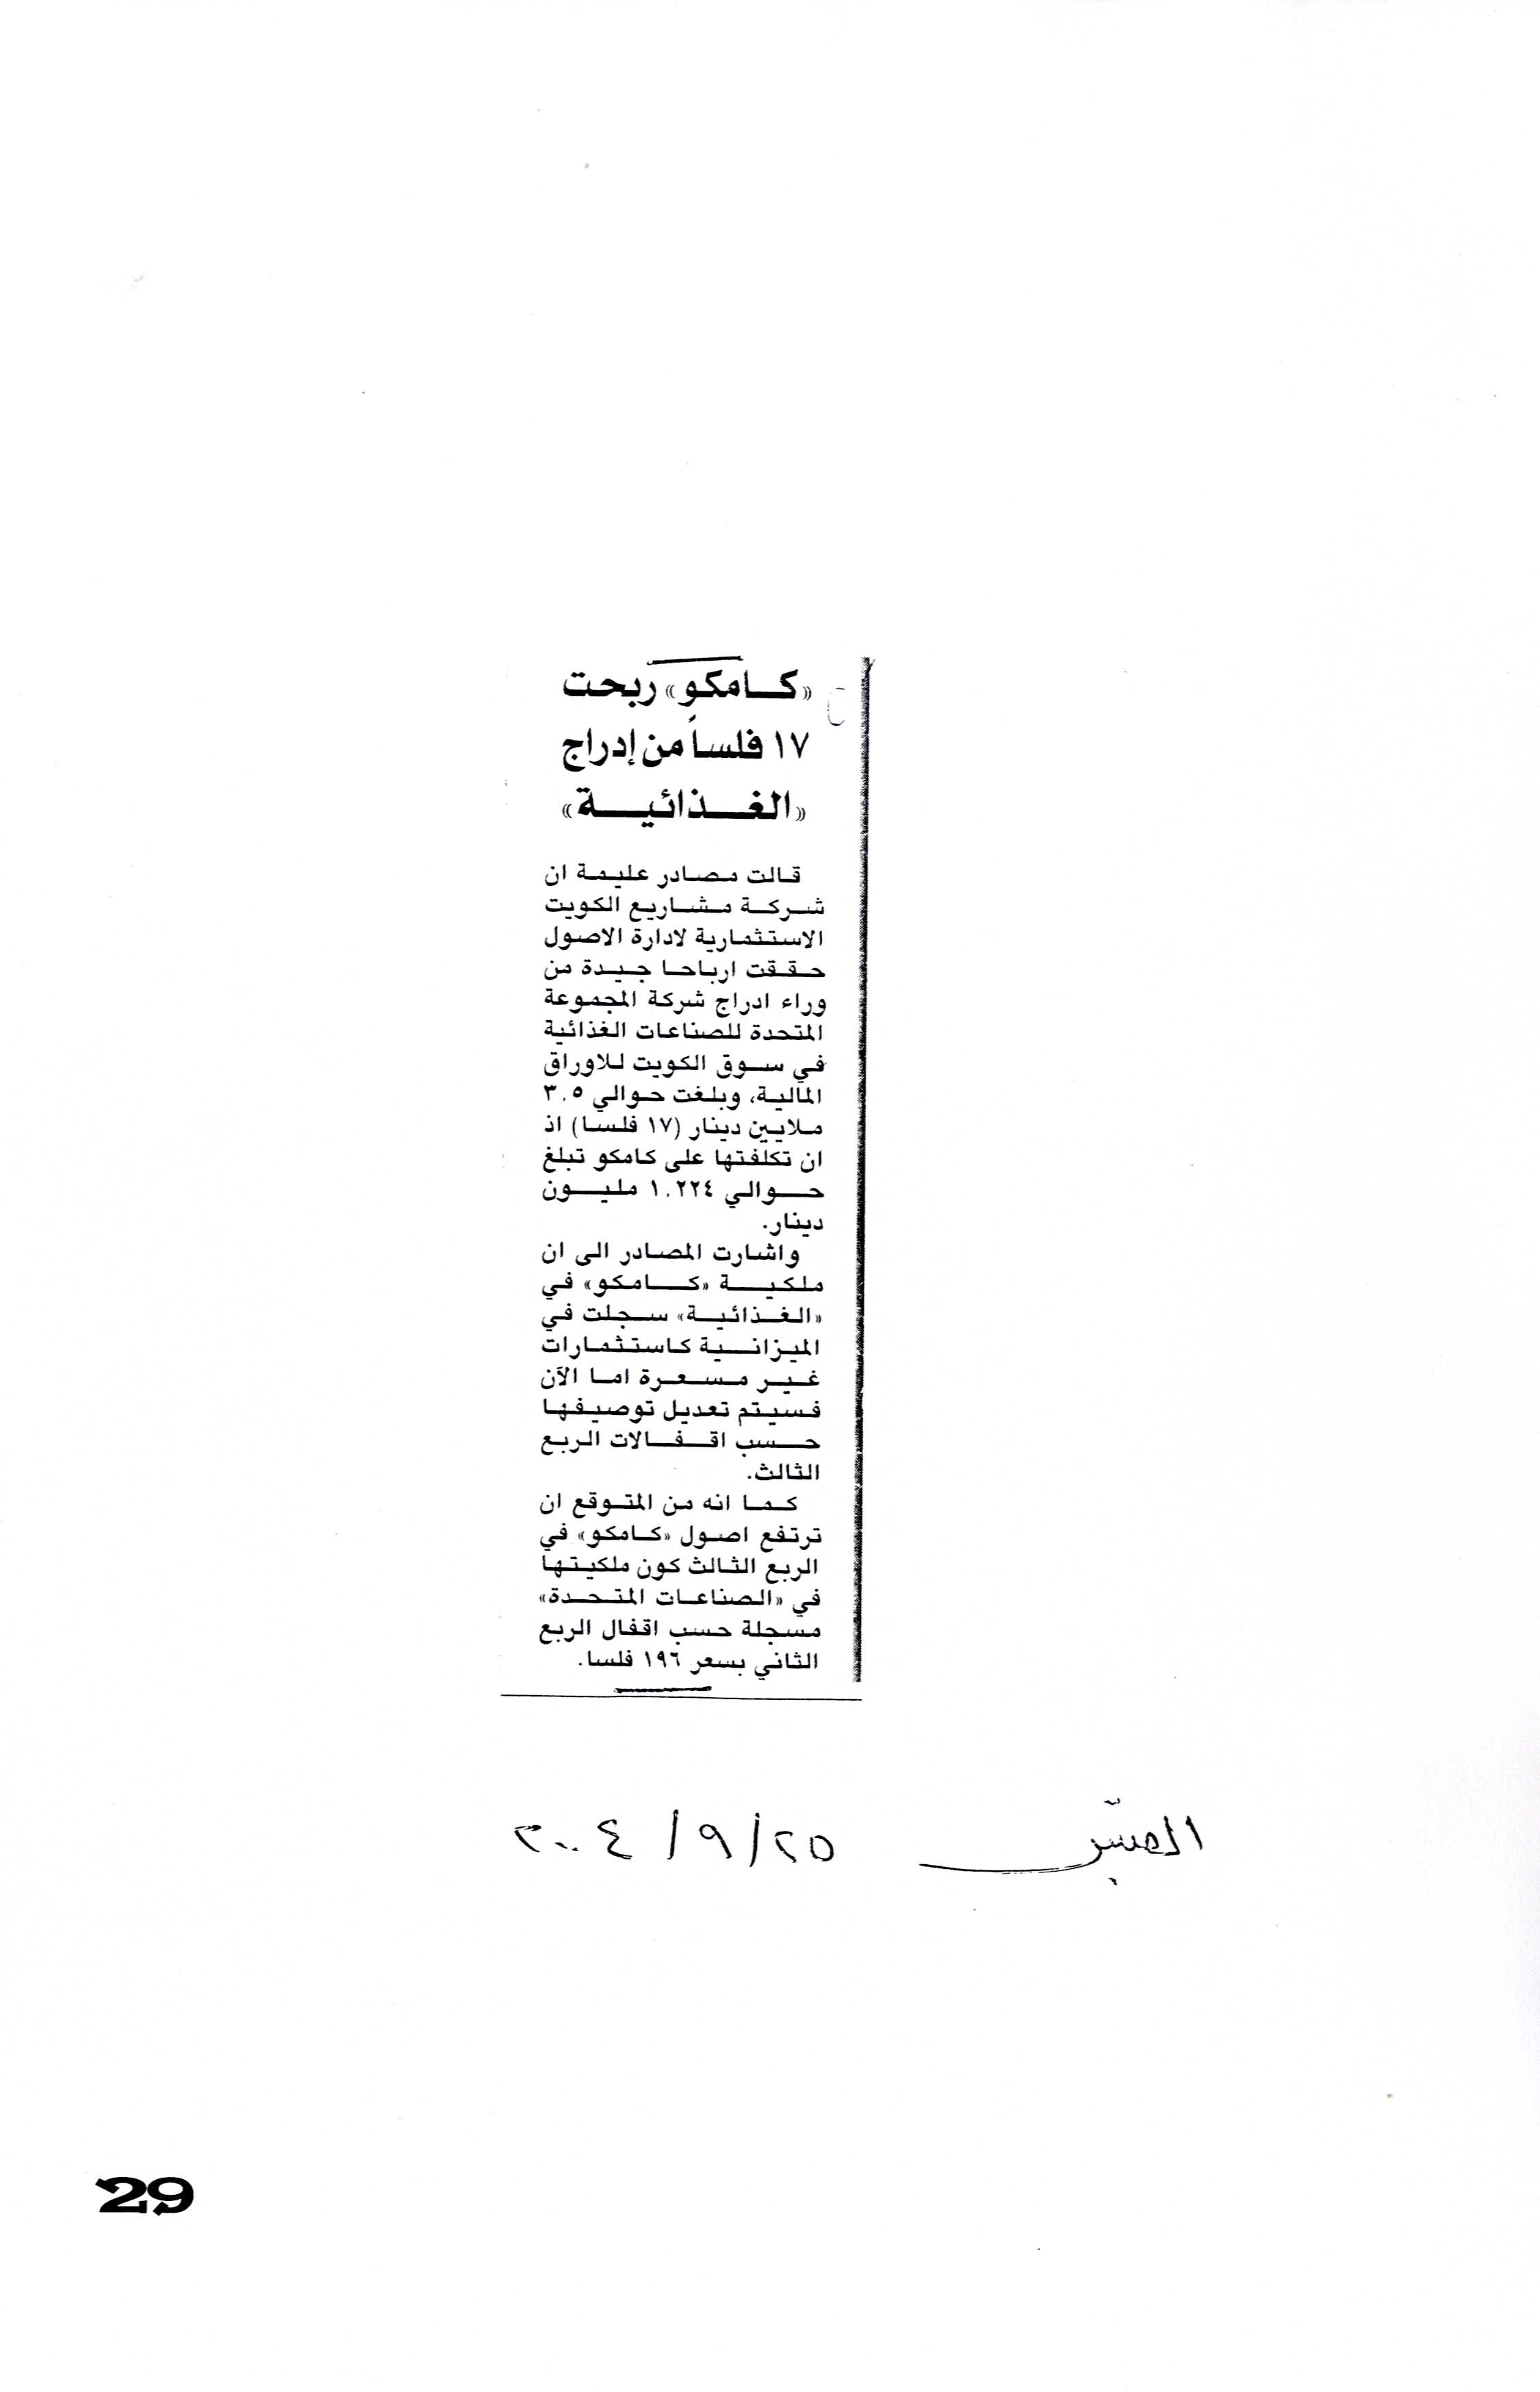 «كامكو» ربحت
١٧ فلساً من إدراج
«الغذائية»
قالت مصادر عليمة ان
شركة مشاريع الكويت
الاستثمارية لادارة الاصول
حققت ارباحا جيدة من
وراء ادراج شركة المجموعة
المتحدة للصناعات الغذائية
في سوق الكويت للاوراق
المالية، وبلغت حوالي ٣.٥
ملايين دينار (١٧ فلسا) اذ
ان تكلفتها على كامكو تبلغ
حوالي ١.٢٢٤ مليون
دينار.
واشارت المصادر الى ان
ملكية «كامكو» في
«الغذائية» سجلت في
الميزانية كاستثمارات
غير مسعرة اما الآن
فسيتم تعديل توصيفها
حسب اقفالات الربع
الثالث.
كما انه من المتوقع ان
ترتفع اصول «كامكو» في
الربع الثالث كون ملكيتها
في «الصناعات المتحدة»
مسجلة حسب اقفال الربع
الثاني بسعر ١٩٦ فلسا.
القبس ٢٥/٩/٢٠٠٤
29